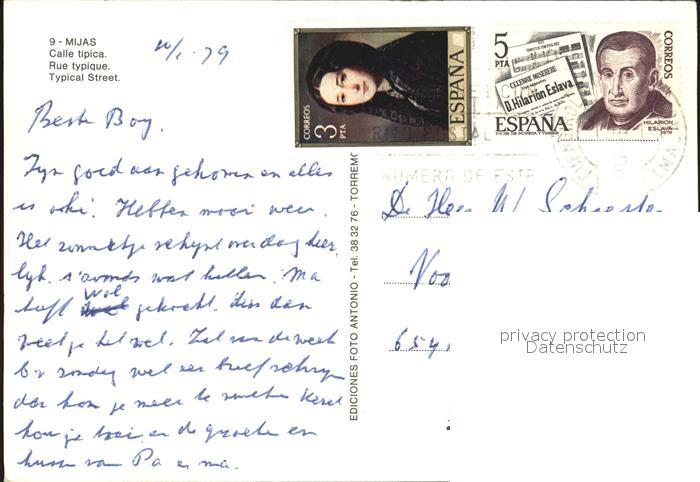 9 - MIJAS
Calle típica.
Rue typique.
Typical Street.
10/1-79
Beste Boy.
Zyn goed aangekomen en alles
is oké. Hebben mooi weer.
Het zonnetje schynt overdag heer
lyk. s'avonds wat killer. Ma
heeft wol gekocht. dus dan
weet je het wel. Zal van de week
of zondag wel een brief schryven
dan kom je meer te weten. Kerel
hou je taai en de groeten en
kussen van Pa en ma.
EDICIONES FOTO ANTONIO - Tel. 38 32 76 - TORREMO
CORREOS
3 PTA
ESPAÑA
5 PTA
CORREOS
CELEBRE MISERERE
D. Hilarión Eslava
ESPAÑA
HILARION
ESLAVA
1978
NUMERO DE ESTE
De Heer W
Voo
654
privacy protection
Datenschutz